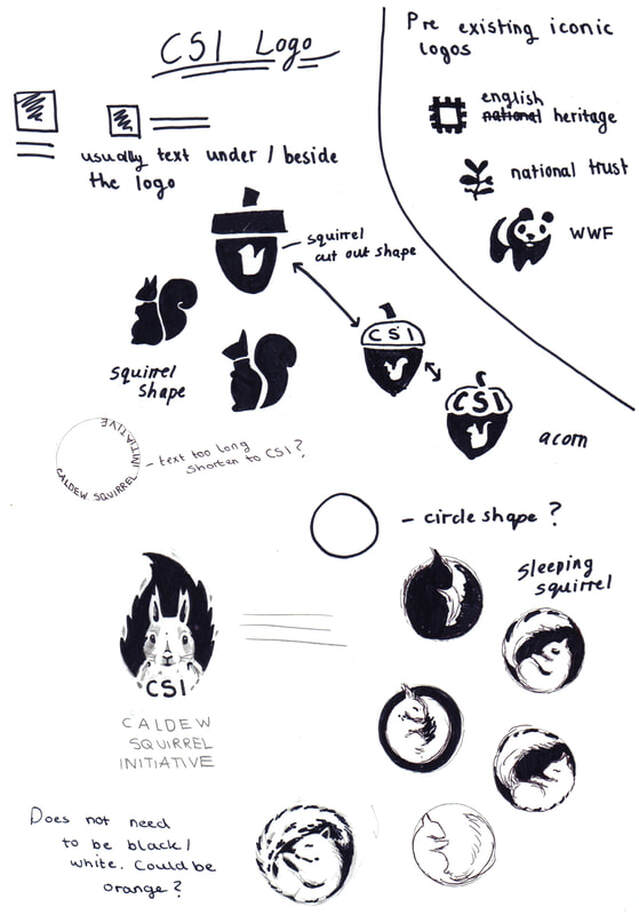 CSI Logo
Pre existing iconic
logos
english
national heritage
national trust
WWF
usually text under / beside
the logo
squirrel
cut out shape
squirrel
shape
CSI
CSI
acorn
CALDEW SQUIRREL INITIATIVE
- text too long
shorten to CSI?
- circle shape ?
sleeping
squirrel
CSI
CALDEW
SQUIRREL
INITIATIVE
Does not need
to be black /
white. Could be
orange ?